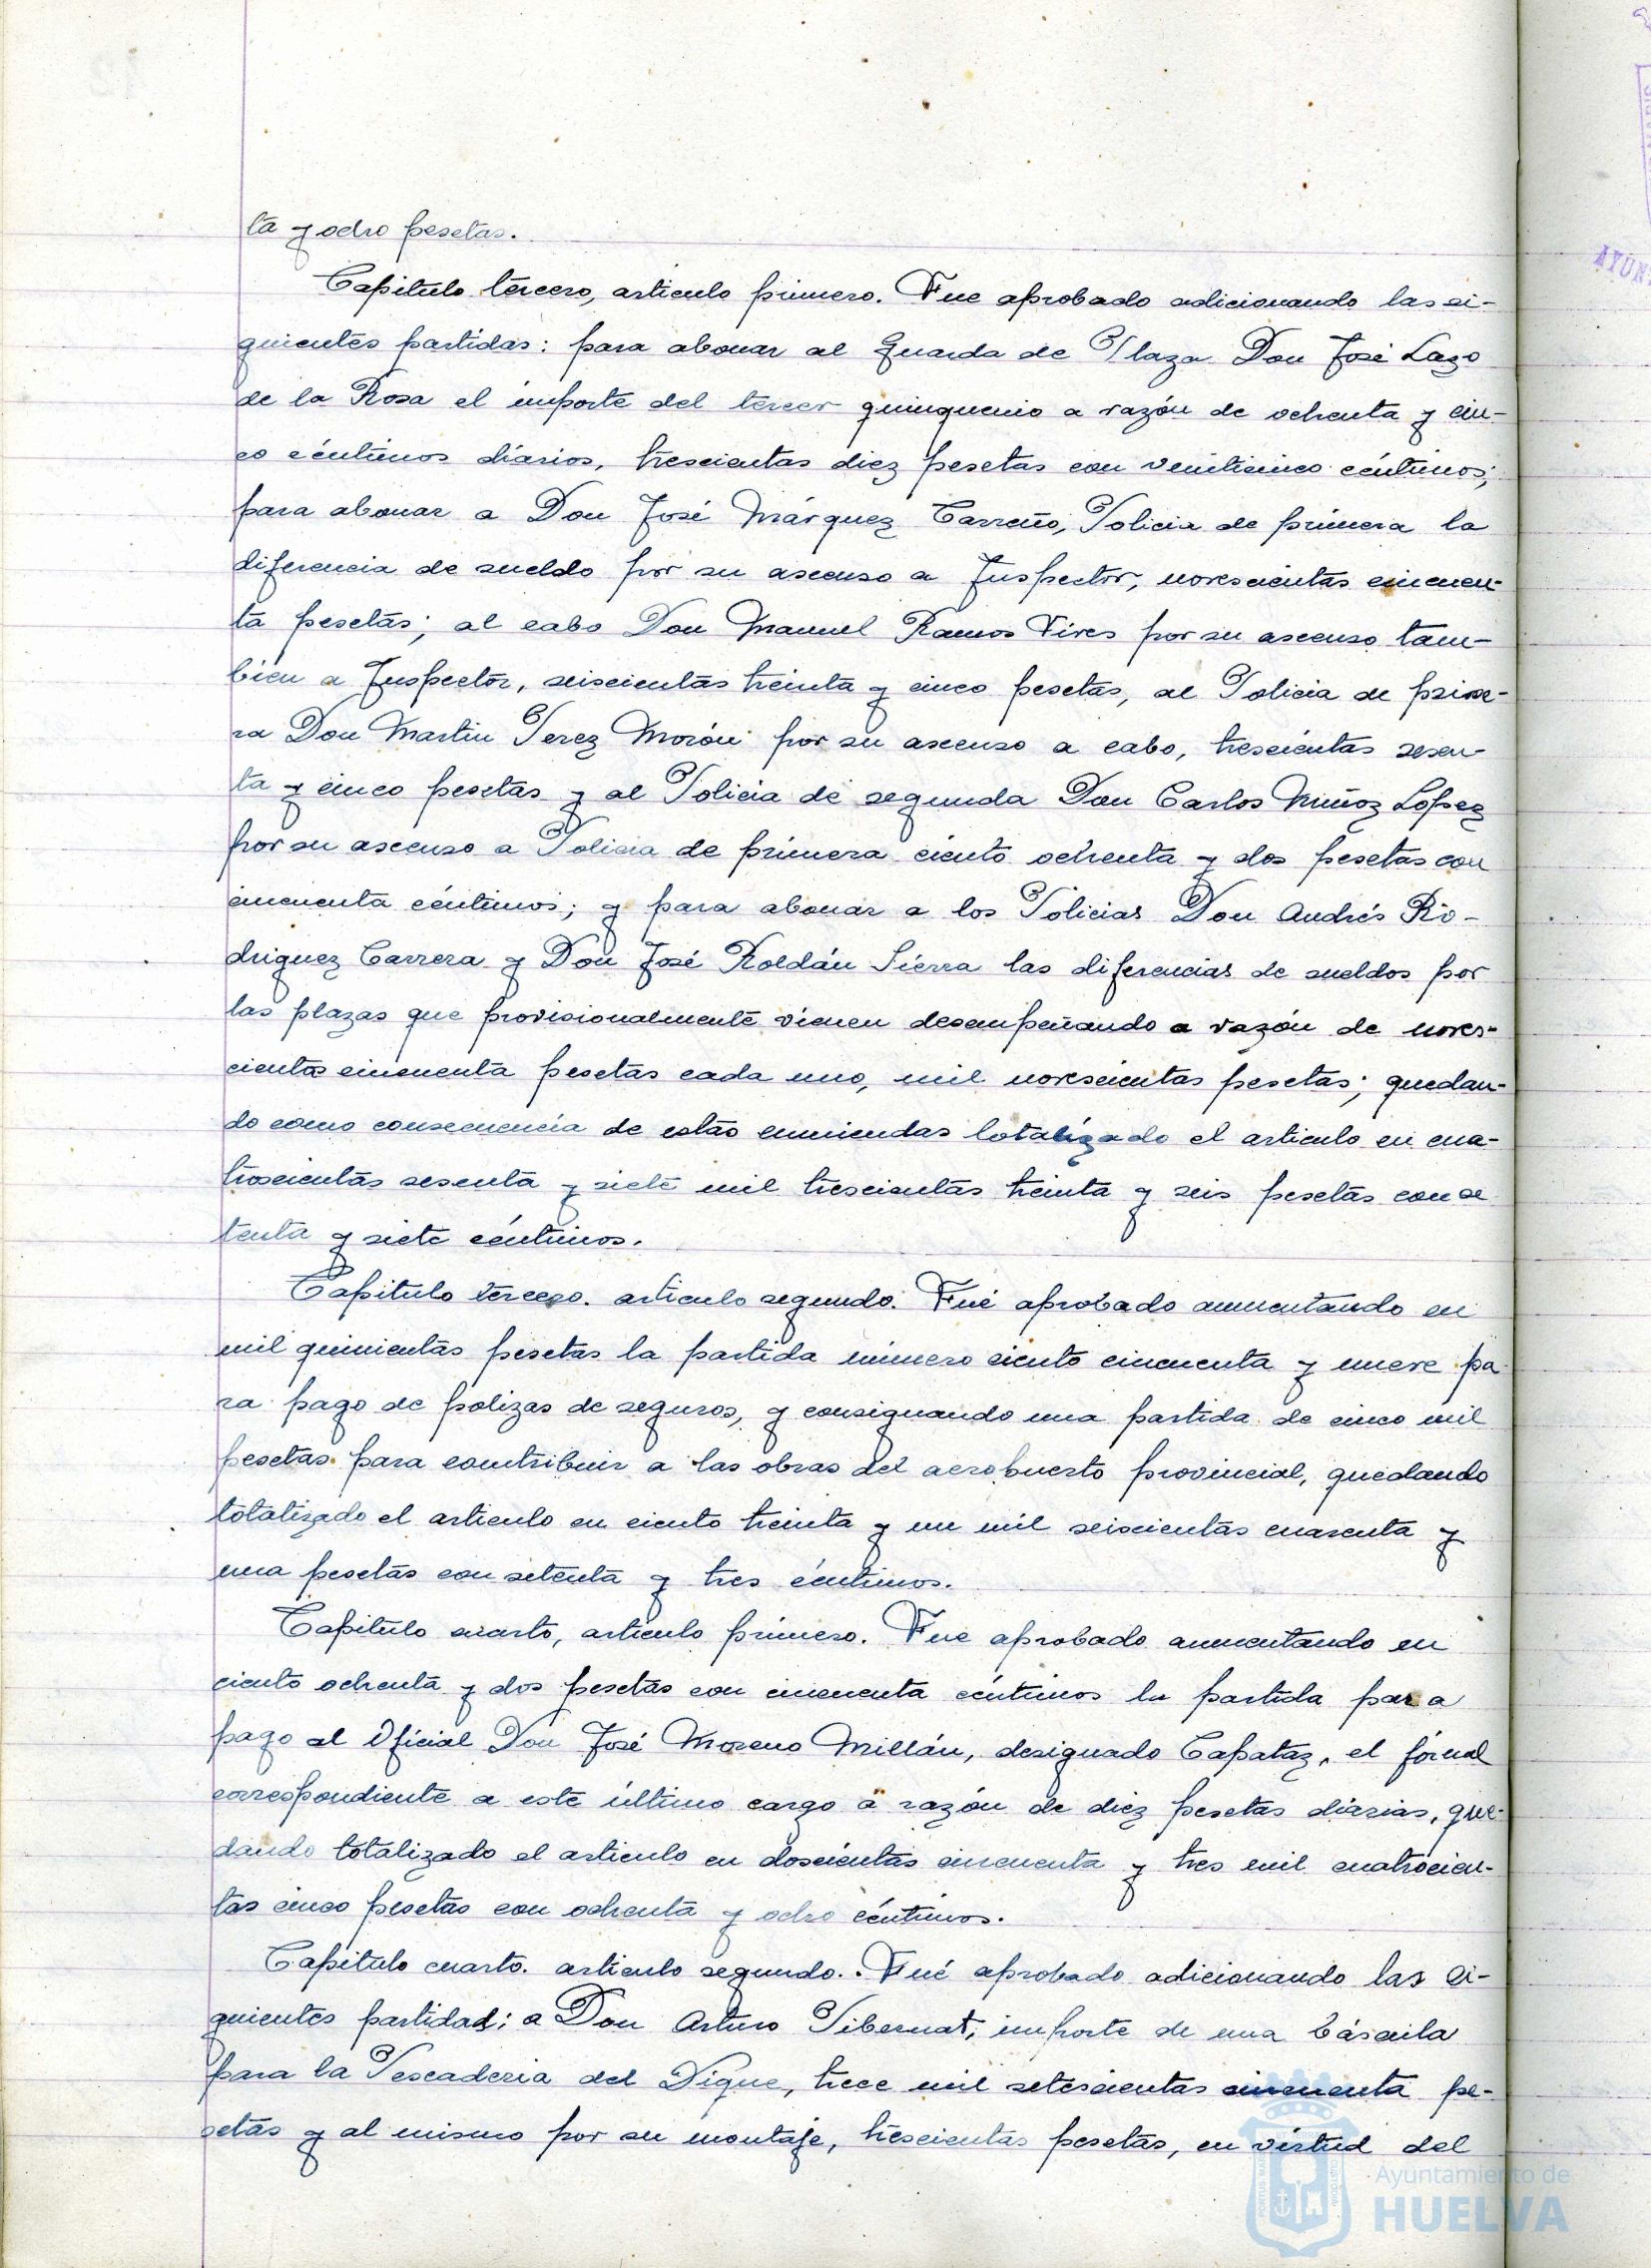 ta y ocho pesetas.
Capitulo tercero, articulo primero. Fue aprobado adicionando las si-
guientes partidas: para abonar al Guarda de Plaza Don José Lazo
de la Rosa el importe del tercer quinquenio a razón de ochenta y cin-
co céntimos diarios, trescientas diez pesetas con veinticinco céntimos;
para abonar a Don José Márquez Carreño, Policia de primera la
diferencia de sueldo por su ascenso a Inspector, novescientas cincuen-
ta pesetas; al cabo Don Manuel Ramos Vives por su ascenso tam-
bien a Inspector, seiscientas treinta y cinco pesetas, al Policia de prime-
ra Don Martin Perez Morón por su ascenso a cabo, trescientas sesen-
ta y cinco pesetas y al Policia de segunda Don Carlos Muñoz Lopez
por su ascenso a Policia de primera ciento ochenta y dos pesetas con
cincuenta céntimos; y para abonar a los Policias Don Andrés Ro-
driguez Carrera y Don José Roldán Sierra las diferencias de sueldos por
las plazas que provisionalmente vienen desempeñando a razón de noves-
cientas cincuenta pesetas cada uno, mil novescientas pesetas; quedan-
do como consecuencia de estas enmiendas totalizado el articulo en cua-
troscientas sesenta y siete mil trescientas treinta y seis pesetas con se
tenta y siete céntimos.
Capitulo tercero. articulo segundo. Fué aprobado aumentando en
mil quinientas pesetas la partida número ciento cincuenta y nueve pa
ra pago de polizas de seguros, y consignando una partida de cinco mil
pesetas para contribuir a las obras del aeropuerto provincial, quedando
totalizado el articulo en ciento treinta y un mil seiscientas cuarenta y
una pesetas con setenta y tres céntimos.
Capitulo cuarto, articulo primero. Fue aprobado aumentando en
ciento ochenta y dos pesetas con cincuenta céntimos la partida para
pago al Oficial Don José Moreno Millán, designado Capataz, el jórnal
correspondiente a este último cargo a razón de diez pesetas diarias, que-
dando totalizado el articulo en doscientas cincuenta y tres mil cuatrocien-
tas cinco pesetas con ochenta y ocho céntimos.
Capitulo cuarto. articulo segundo.. Fué aprobado adicionando las si-
guientes partidas; a Don Arturo Pibernat, importe de una báscula
para la Pescaderia del Dique, trece mil setescientas cincuenta pe-
setas y al mismo por su montaje, trescientas pesetas, en virtud del
Ayuntamiento de
HUELVA